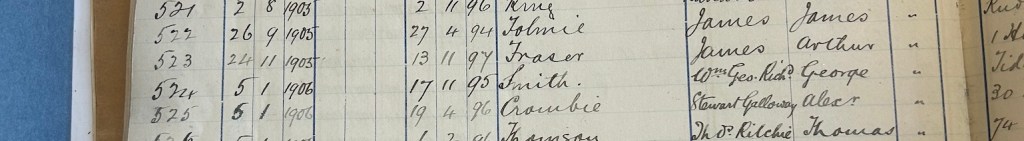 521 2 8 1905 2 11 96 King James James "
522 26 9 1905 27 4 94 Tolmie James Arthur " 1
523 24 11 1905 13 11 97 Fraser Wm Geo. Richd George "
524 5 1 1906 17 11 95 Smith. Stewart Galloway Alexr " 30
525 5 1 1906 19 4 96 Crombie Thos. Ritchie Thomas " 74
Thomson